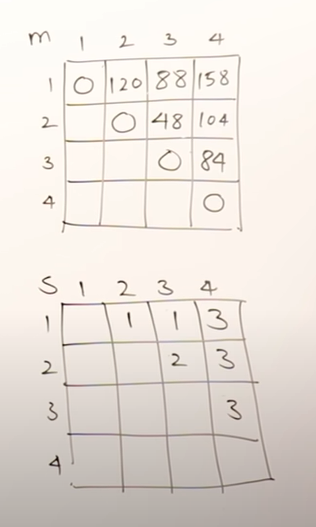 m 1 2 3 4
1 0 120 88 158
2 0 48 104
3 0 84
4 0
S 1 2 3 4
1 1 1 3
2 2 3
3 3
4